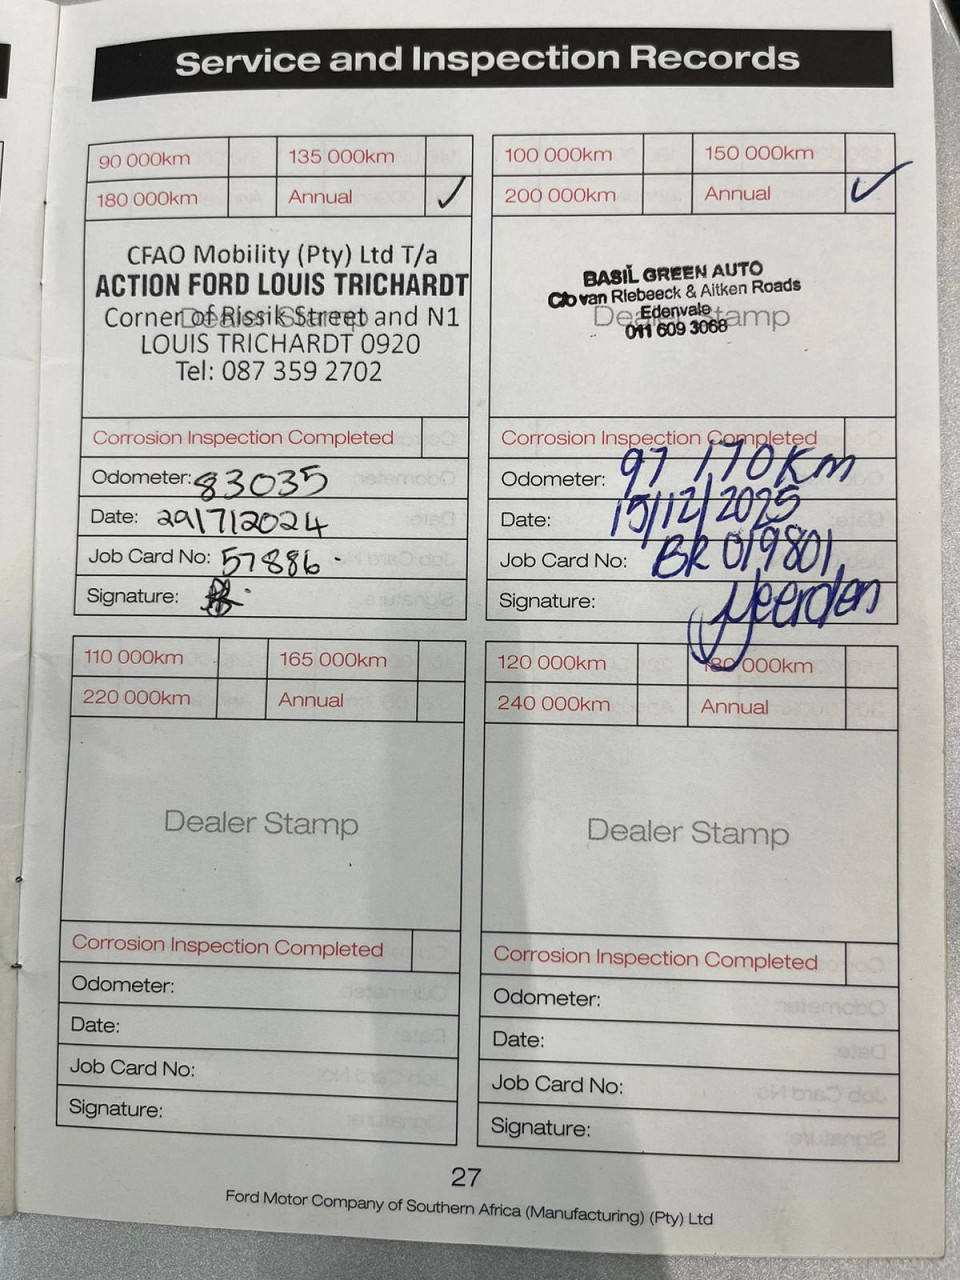 Service and Inspection Records
90 000km 135 000km
180 000km Annual ✓
CFAO Mobility (Pty) Ltd T/a
ACTION FORD LOUIS TRICHARDT
Corner of Rissik Street and N1
Dealer Stamp
LOUIS TRICHARDT 0920
Tel: 087 359 2702
Corrosion Inspection Completed
Odometer: 83035
Date: 29/7/2024
Job Card No: 57886
Signature:
100 000km 150 000km
200 000km Annual ✓
BASIL GREEN AUTO
C/o van Riebeeck & Aitken Roads
Edenvale
Dealer Stamp
011 609 3068
Corrosion Inspection Completed
Odometer: 97 170 Km
Date: 15/12/2025
Job Card No: BR 019801
Signature:
110 000km 165 000km
220 000km Annual
Dealer Stamp
Corrosion Inspection Completed
Odometer:
Date:
Job Card No:
Signature:
120 000km 180 000km
240 000km Annual
Dealer Stamp
Corrosion Inspection Completed
Odometer:
Date:
Job Card No:
Signature:
27
Ford Motor Company of Southern Africa (Manufacturing) (Pty) Ltd